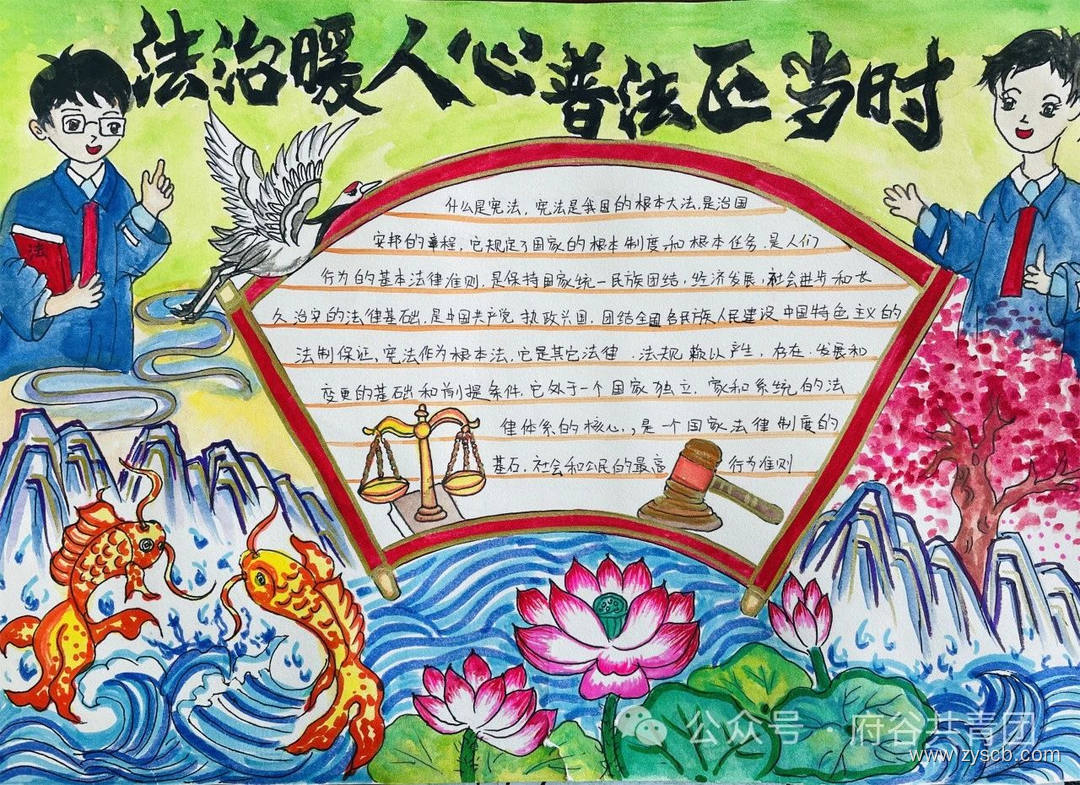 法治暖人心 普法正当时
法
什么是宪法，宪法是我国的根本大法，是治国
安邦的章程，它规定了国家的根本制度和根本任务，是人们
行为的基本法律准则，是保持国家统一民族团结，经济发展，社会进步和长
久治安的法律基础，是中国共产党执政兴国，团结全国各民族人民建设中国特色主义的
法制保证，宪法作为根本法，它是其它法律．法规赖以产生，存在．发展和
变更的基础和前提条件，它处于一个国家独立．家和系统的法
律体系的核心，，是一个国家法律制度的
基石，社会和公民的最高 行为准则
公众号 · 府谷共青团
www.zyscb.com